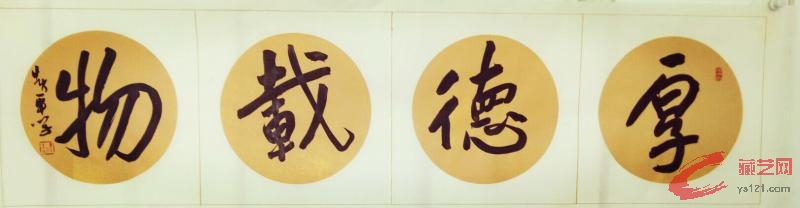 厚德載物
藏艺网
ys121.com